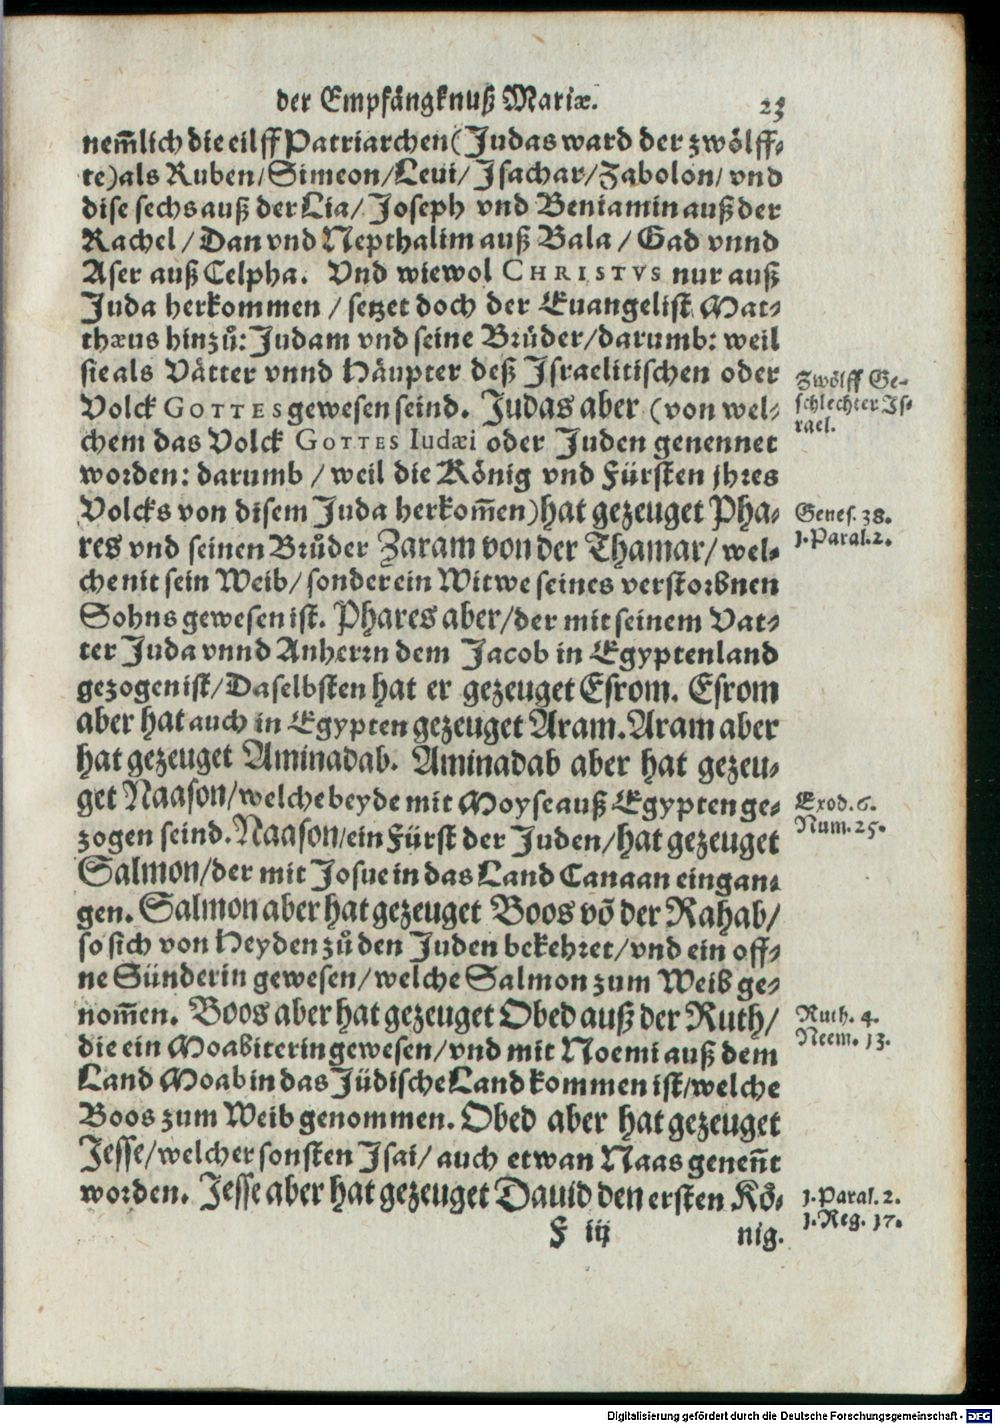 der Empfängknuß Mariæ.
23
nem̃lich die eilff Patriarchen (Judas ward der zwölff-
te) als Ruben/ Simeon/ Leui/ Isachar/ Zabolon/ vnd
dise sechs auß der Lia/ Joseph vnd Beniamin auß der
Rachel/ Dan vnd Nepthalim auß Bala/ Gad vnnd
Aser auß Celpha. Vnd wiewol CHRISTVS nur auß
Juda herkommen/ setzet doch der Euangelist Mat-
thæus hinzů: Judam vnd seine Brüder/ darumb: weil
sie als Vätter vnnd Häupter deß Israelitischen oder
Volck GOTTES gewesen seind. Judas aber (von wel-
chem das Volck GOTTES Iudæi oder Juden genennet
worden: darumb/ weil die König vnd Fürsten jhres
Volcks von disem Juda herkom̃en) hat gezeuget Pha-
res vnd seinen Brůder Zaram von der Thamar/ wel-
che nit sein Weib/ sonder ein Witwe seines verstorbnen
Sohns gewesen ist. Phares aber/ der mit seinem Vat-
ter Juda vnnd Anherrn dem Jacob in Egyptenland
gezogen ist/ Daselbsten hat er gezeuget Esrom. Esrom
aber hat auch in Egypten gezeuget Aram. Aram aber
hat gezeuget Aminadab. Aminadab aber hat gezeu-
get Naason/ welche beyde mit Moyse auß Egypten ge-
zogen seind. Naason/ ein Fürst der Juden/ hat gezeuget
Salmon/ der mit Josue in das Land Canaan eingan-
gen. Salmon aber hat gezeuget Boos võ der Rahab/
so sich von Heyden zů den Juden bekehret/ vnd ein off-
ne Sünderin gewesen/ welche Salmon zum Weib ge-
nom̃en. Boos aber hat gezeuget Obed auß der Ruth/
die ein Moabiterin gewesen/ vnd mit Noemi auß dem
Land Moab in das Jüdische Land kommen ist/ welche
Boos zum Weib genommen. Obed aber hat gezeuget
Jesse/ welcher sonsten Isai/ auch etwan Naas genen̄t
worden. Jesse aber hat gezeuget Dauid den ersten Kö-
F iij
nig.
Zwölff Ge-
schlechter Is-
rael.
Genes. 38.
1. Paral. 2.
Exod. 6.
Num. 25.
Ruth. 4.
Neem. 13.
1. Paral. 2.
1. Reg. 17.
Digitalisierung gefördert durch die Deutsche Forschungsgemeinschaft - DFG